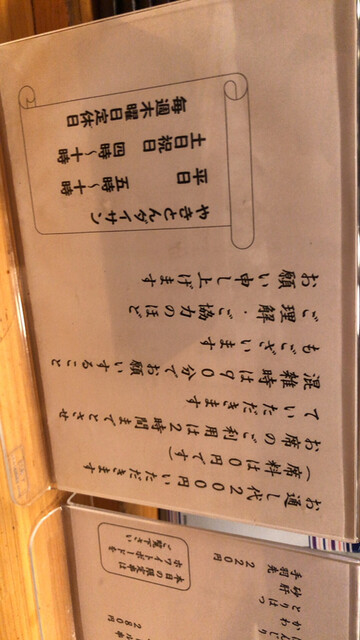 お通し代200円いただきます
(席料は0円です)
お席のご利用は2時間までとさせ
ていただきます
混雑時は90分でお願いすること
もございます
ご理解・ご協力のほど
お願い申し上げます
やきとんダイサン
平日 五時〜十時
土日祝日 四時〜十時
毎週木曜日定休日
砂肝
手羽先 220円
とりはつ
280円
本日の限定串は
ホワイトボードを
ご覧下さい